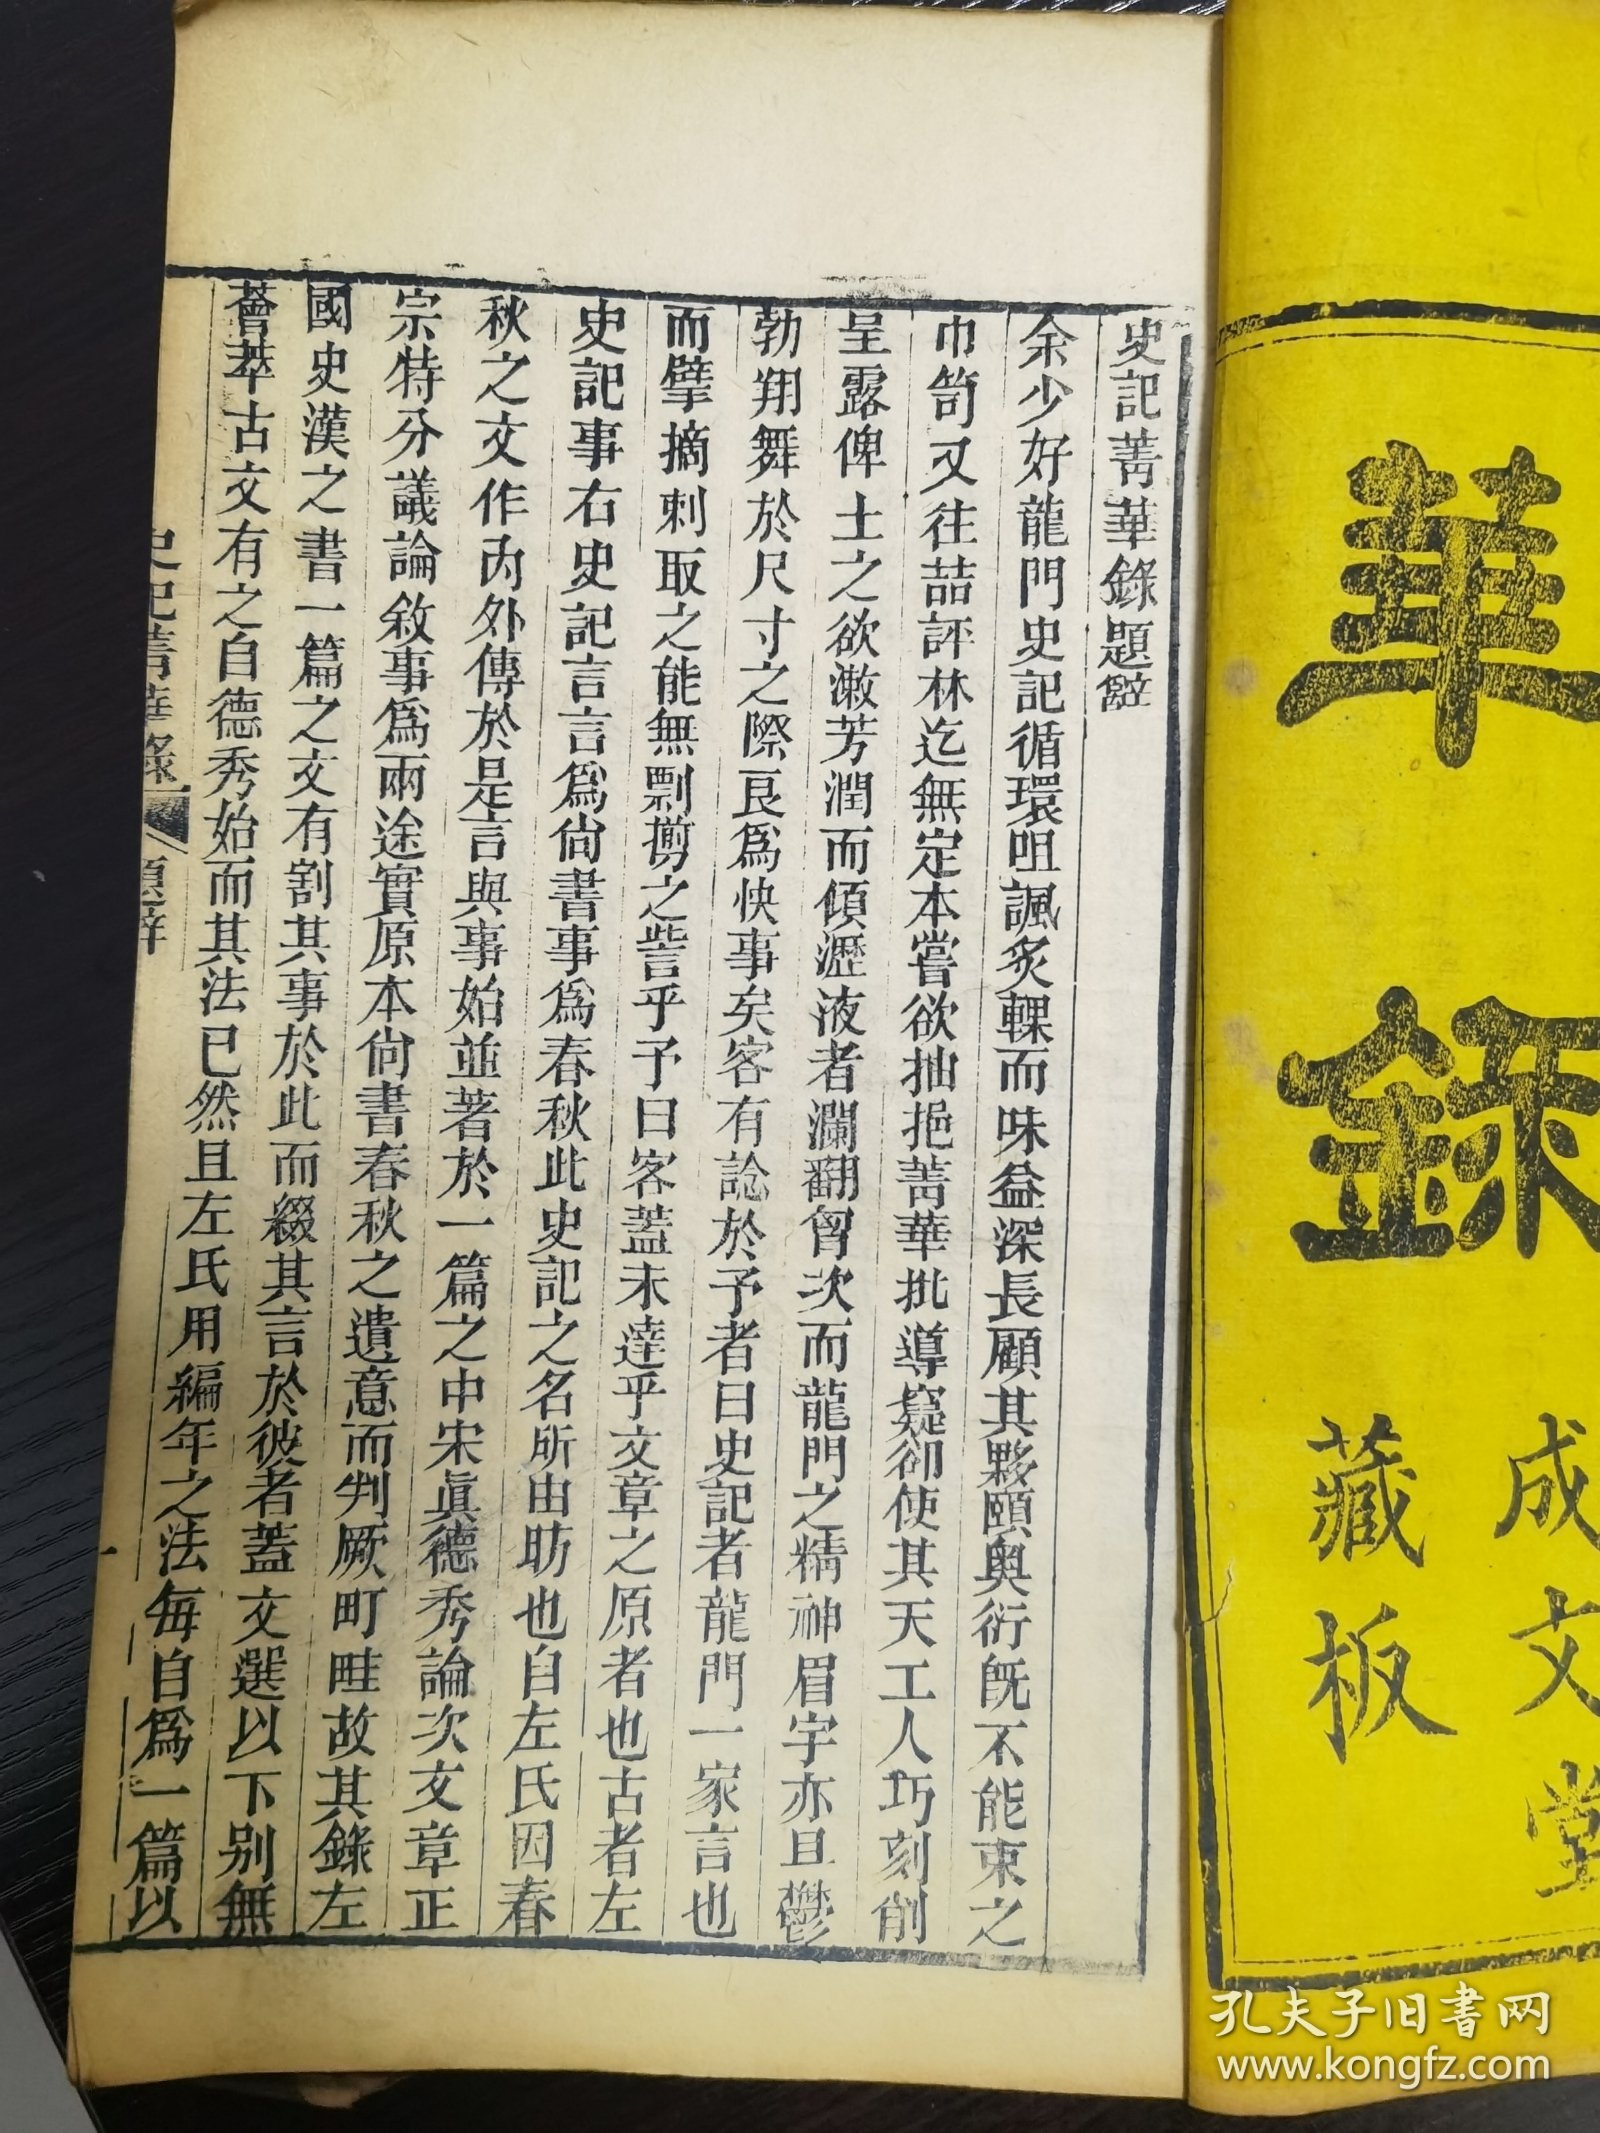 華錄
成文堂
藏板
史記菁華錄題辭
余少好龍門史記循環咀諷炙輠而味益深長顧其夥頤奧衍旣不能束之
巾笥又往喆評林迄無定本嘗欲抽挹菁華批導窾郤使其天工人巧刻削
呈露俾士之欲漱芳潤而傾瀝液者瀾翻胷次而龍門之精神眉宇亦且鬱
勃翔舞於尺寸之際良爲快事矣客有諗於予者曰史記者龍門一家言也
而擘摘刺取之能無剽摲之訾乎予曰客蓋未達乎文章之原者也古者左
史記事右史記言言爲尙書事爲春秋此史記之名所由昉也自左氏因春
秋之文作內外傳於是言與事始並著於一篇之中宋眞德秀論次文章正
宗特分議論敘事爲兩途實原本尙書春秋之遺意而判厥町畦故其錄左
國史漢之書一篇之文有割其事於此而綴其言於彼者蓋文選以下別無
薈萃古文有之自德秀始而其法已然且左氏用編年之法每自爲一篇以
史記菁華錄 題辭 一
孔夫子旧书网
www.kongfz.com